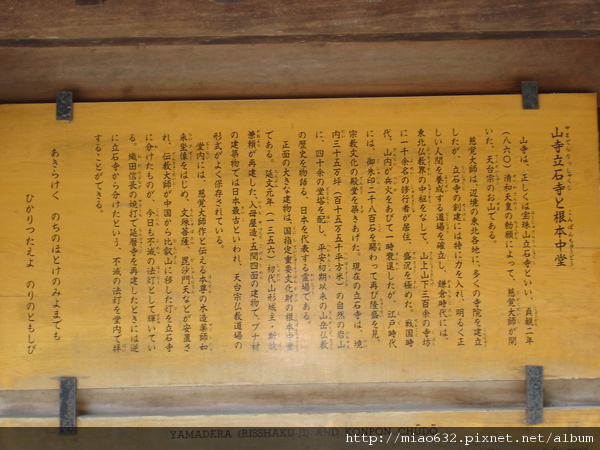 山寺立石寺と根本中堂
山寺は、正しくは宝珠山立石寺といい、貞観二年
(八六〇)清和天皇の勅願によって、慈覚大師が開
いた、天台宗のお山である。
慈覚大師は辺境の東北各地に、多くの寺院を建立
したが、立石寺の創建には特に力を入れ、明るく正
しい人間を養成する道場を確立し、鎌倉時代には、
東北仏教界の中枢をなして、山上山下三百余の寺坊
に一千余名の修行者が居住、盛況を極めた。戦国時
代、山内が兵火をあびて一時衰退したが、江戸時代
には、御朱印二千八百石を賜わって再び隆盛を見、
宗教文化の殿堂を築きあげた。現在の立石寺は、境
内三十五万坪(百十五万五千平方米)の自然の岩山
に、四十余の堂塔を配し、平安初期以来の山岳仏教
の歴史を物語る、日本を代表する霊場である。
正面の大きな建物は、国指定重要文化財の根本中堂
である。延文元年(一三五六)初代山形城主・斯波
兼頼が再建した、入母屋造・五間四面の建物で、ブナ材
の建築物では日本最古といわれ、天台宗仏教道場の
形式がよく保存されている。
堂内には、慈覚大師作と伝える本尊の木造薬師如
来坐像をはじめ、文殊菩薩、毘沙門天などが安置さ
れ、伝教大師が中国から比叡山に移した灯を立石寺
に分けたものが、今日も不滅の法灯として輝いてい
る。織田信長の焼打で延暦寺を再建したときには逆
に立石寺から分けたという、不滅の法灯を堂内で拝
することができる。
あきらけく のちのほとけのみよまでも
ひかりつたえよ のりのともしび
YAMADERA (RISSHAKU-JI) AND KONPON CHŪDŌ
http://miao632.pixnet.net/album